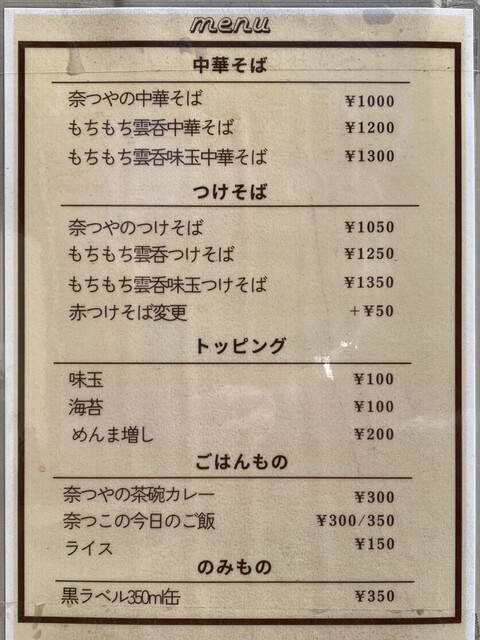 menu
中華そば
奈つやの中華そば ¥1000
もちもち雲呑中華そば ¥1200
もちもち雲呑味玉中華そば ¥1300
つけそば
奈つやのつけそば ¥1050
もちもち雲呑つけそば ¥1250
もちもち雲呑味玉つけそば ¥1350
赤つけそば変更 +¥50
トッピング
味玉 ¥100
海苔 ¥100
めんま増し ¥200
ごはんもの
奈つやの茶碗カレー ¥300
奈つこの今日のご飯 ¥300/350
ライス ¥150
のみもの
黒ラベル350ml缶 ¥350